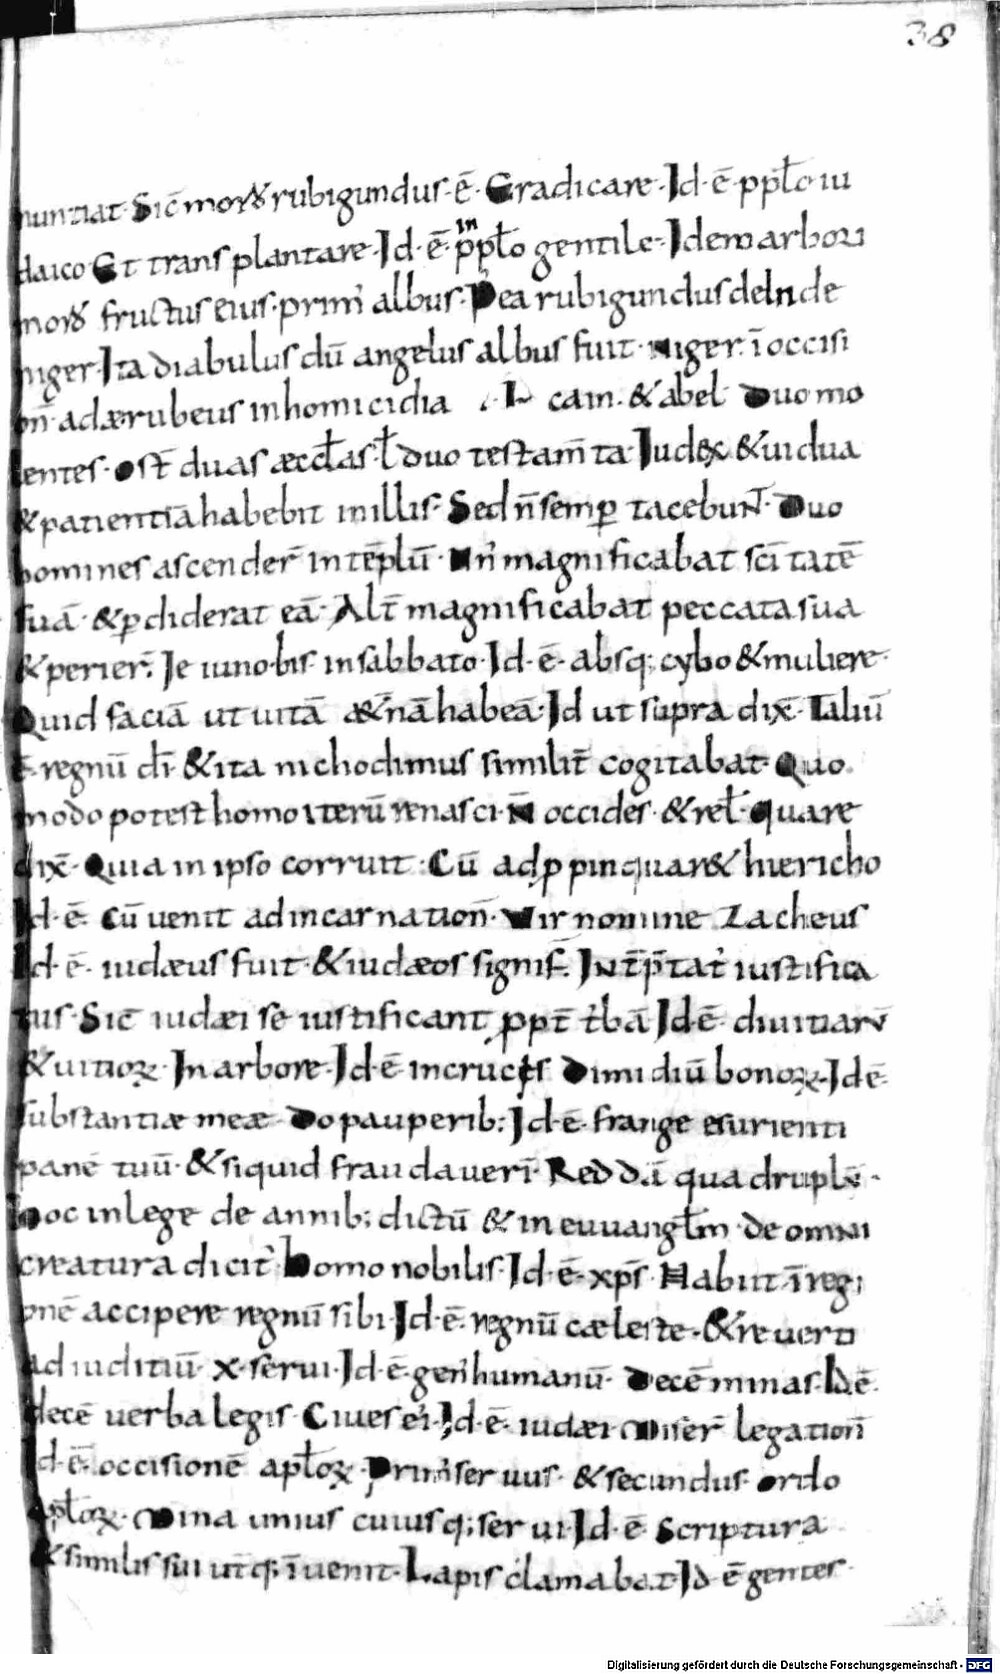 38
nuntiat· Sic̄ morꝰ rubigundus· ē· Eradicare· Id· ē· ppl̄o iu
daico Et transplantare· Id· ē· in ppl̄o gentile· Idem arbori
morꝰ fructus eius· primꝰ albus· Pꝰea rubigundus deInde
niger· Ita diabulus dū angelus albus fuit· niger· ī occisi
on̄· adæ· rubeus inhomicidia cain· & abel· Duo mo
lentes· ost̄ duas æccl̄as· l̄ duo testam̄ta· Iudex & uidua
& patientiā habebit inillis· Sed n̄ semꝑ tacebunt̄· Duo
homines ascender̄ intēplū· Unꝰ magnificabat sc̄itatē
suā· & ꝑdiderat eā· Alt̄ magnificabat peccata sua
& perier̄· Ieiuno bis insabbato· Id· ē· absq; cybo & muliere·
Quid faciā ut uitā æt̄nā habeā· Id ut supra dix̄· Taliū
ē· regnū dī· & ita nichodimus similit̄ cogitabat· Quo
modo potest homo iterū renasci· N̄ occides· & rel̄· quare
dix̄· Quia in ipso corruit· Cū adꝓpinquar& hiericho
Id· ē· cū uenit adincarnation̄· Vir nomine Zacheus
Id· ē· iudæus fuit· & iudæos signif̄· Int̄p̄tatꝰ iustifica
tus· Sic̄ iudæi se iustificant ꝓpt̄ t̓bā Id· ē· diuitiarū
& uitioꝝ· In arbore· Id· ē· incruces Dimidiū bonoꝝ· Id ē·
substantiæ meæ· Do pauperib; Id· ē· frange esurienti
panē tuū· & siquid fraudaueri· Reddā quadruplū·
hoc inlege de annib; dictū & in euuangl̄m de omni
creatura dicitꝰ Homo nobilis· Id· ē· xp̄s· Habiit ī regi
onē accipere regnū sibi· Id· ē· regnū cæleste· & reuerti
ad iuditiū· x· serui· Id· ē· genꝰ humanū· Decē minas· Id· ē·
decē uerba legis· Ciues eiꝰ· Id· ē· iudæi Miser̄ legation̄
Id· ē· occisionē apl̄oꝝ· Primꝰ seruus· & secundus· ordo
apl̄oꝝ· Mina unius cuiusq; serui· Id· ē scriptura
& similis sui utq; īuenit· Lapis clamabat Id· ē gentes·
Digitalisierung gefördert durch die Deutsche Forschungsgemeinschaft - DFG